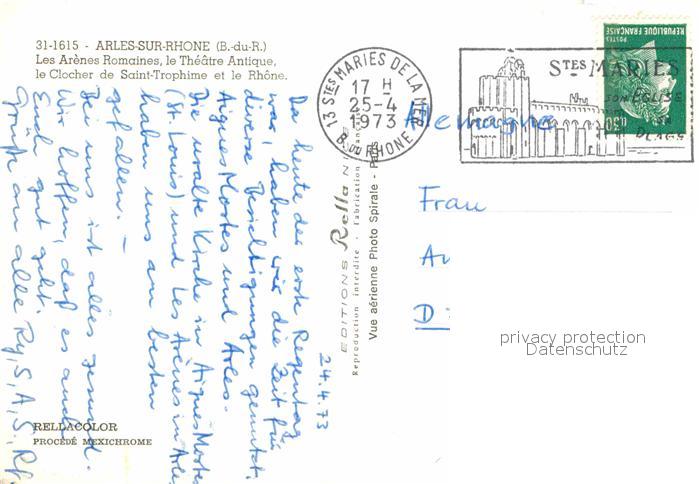 31-1615 - ARLES-SUR-RHONE (B.-du-R.)
Les Arènes Romaines, le Théâtre Antique,
le Clocher de Saint-Trophime et le Rhône.
13 STES MARIES DE LA MER
17 H
25-4
1973
B. DU RHONE
STES MARIES
SON EGLISE
SA
PLAGE
REPUBLIQUE FRANÇAISE
POSTES
0,30
Allemagne
Frau
Au
D
privacy protection
Datenschutz
24.4.73
Da heute der erste Regentag
war, haben wir die Zeit für
diverse Besichtigungen genutzt.
Aigues Mortes und Arles.
Die uralte Kirche in Aigues Mortes
(St. Louis) und Les Arènes in Arles
haben uns am besten
gefallen. –
Bei uns ist alles gesund.
Wir hoffen, daß es auch
Euch gut geht.
Grüße an alle Ry, S, A, S, Rf
EDITIONS Rella NICE
Reproduction interdite - Fabrication française
Vue aérienne Photo Spirale - Paris
RELLACOLOR
PROCÉDÉ MEXICHROME